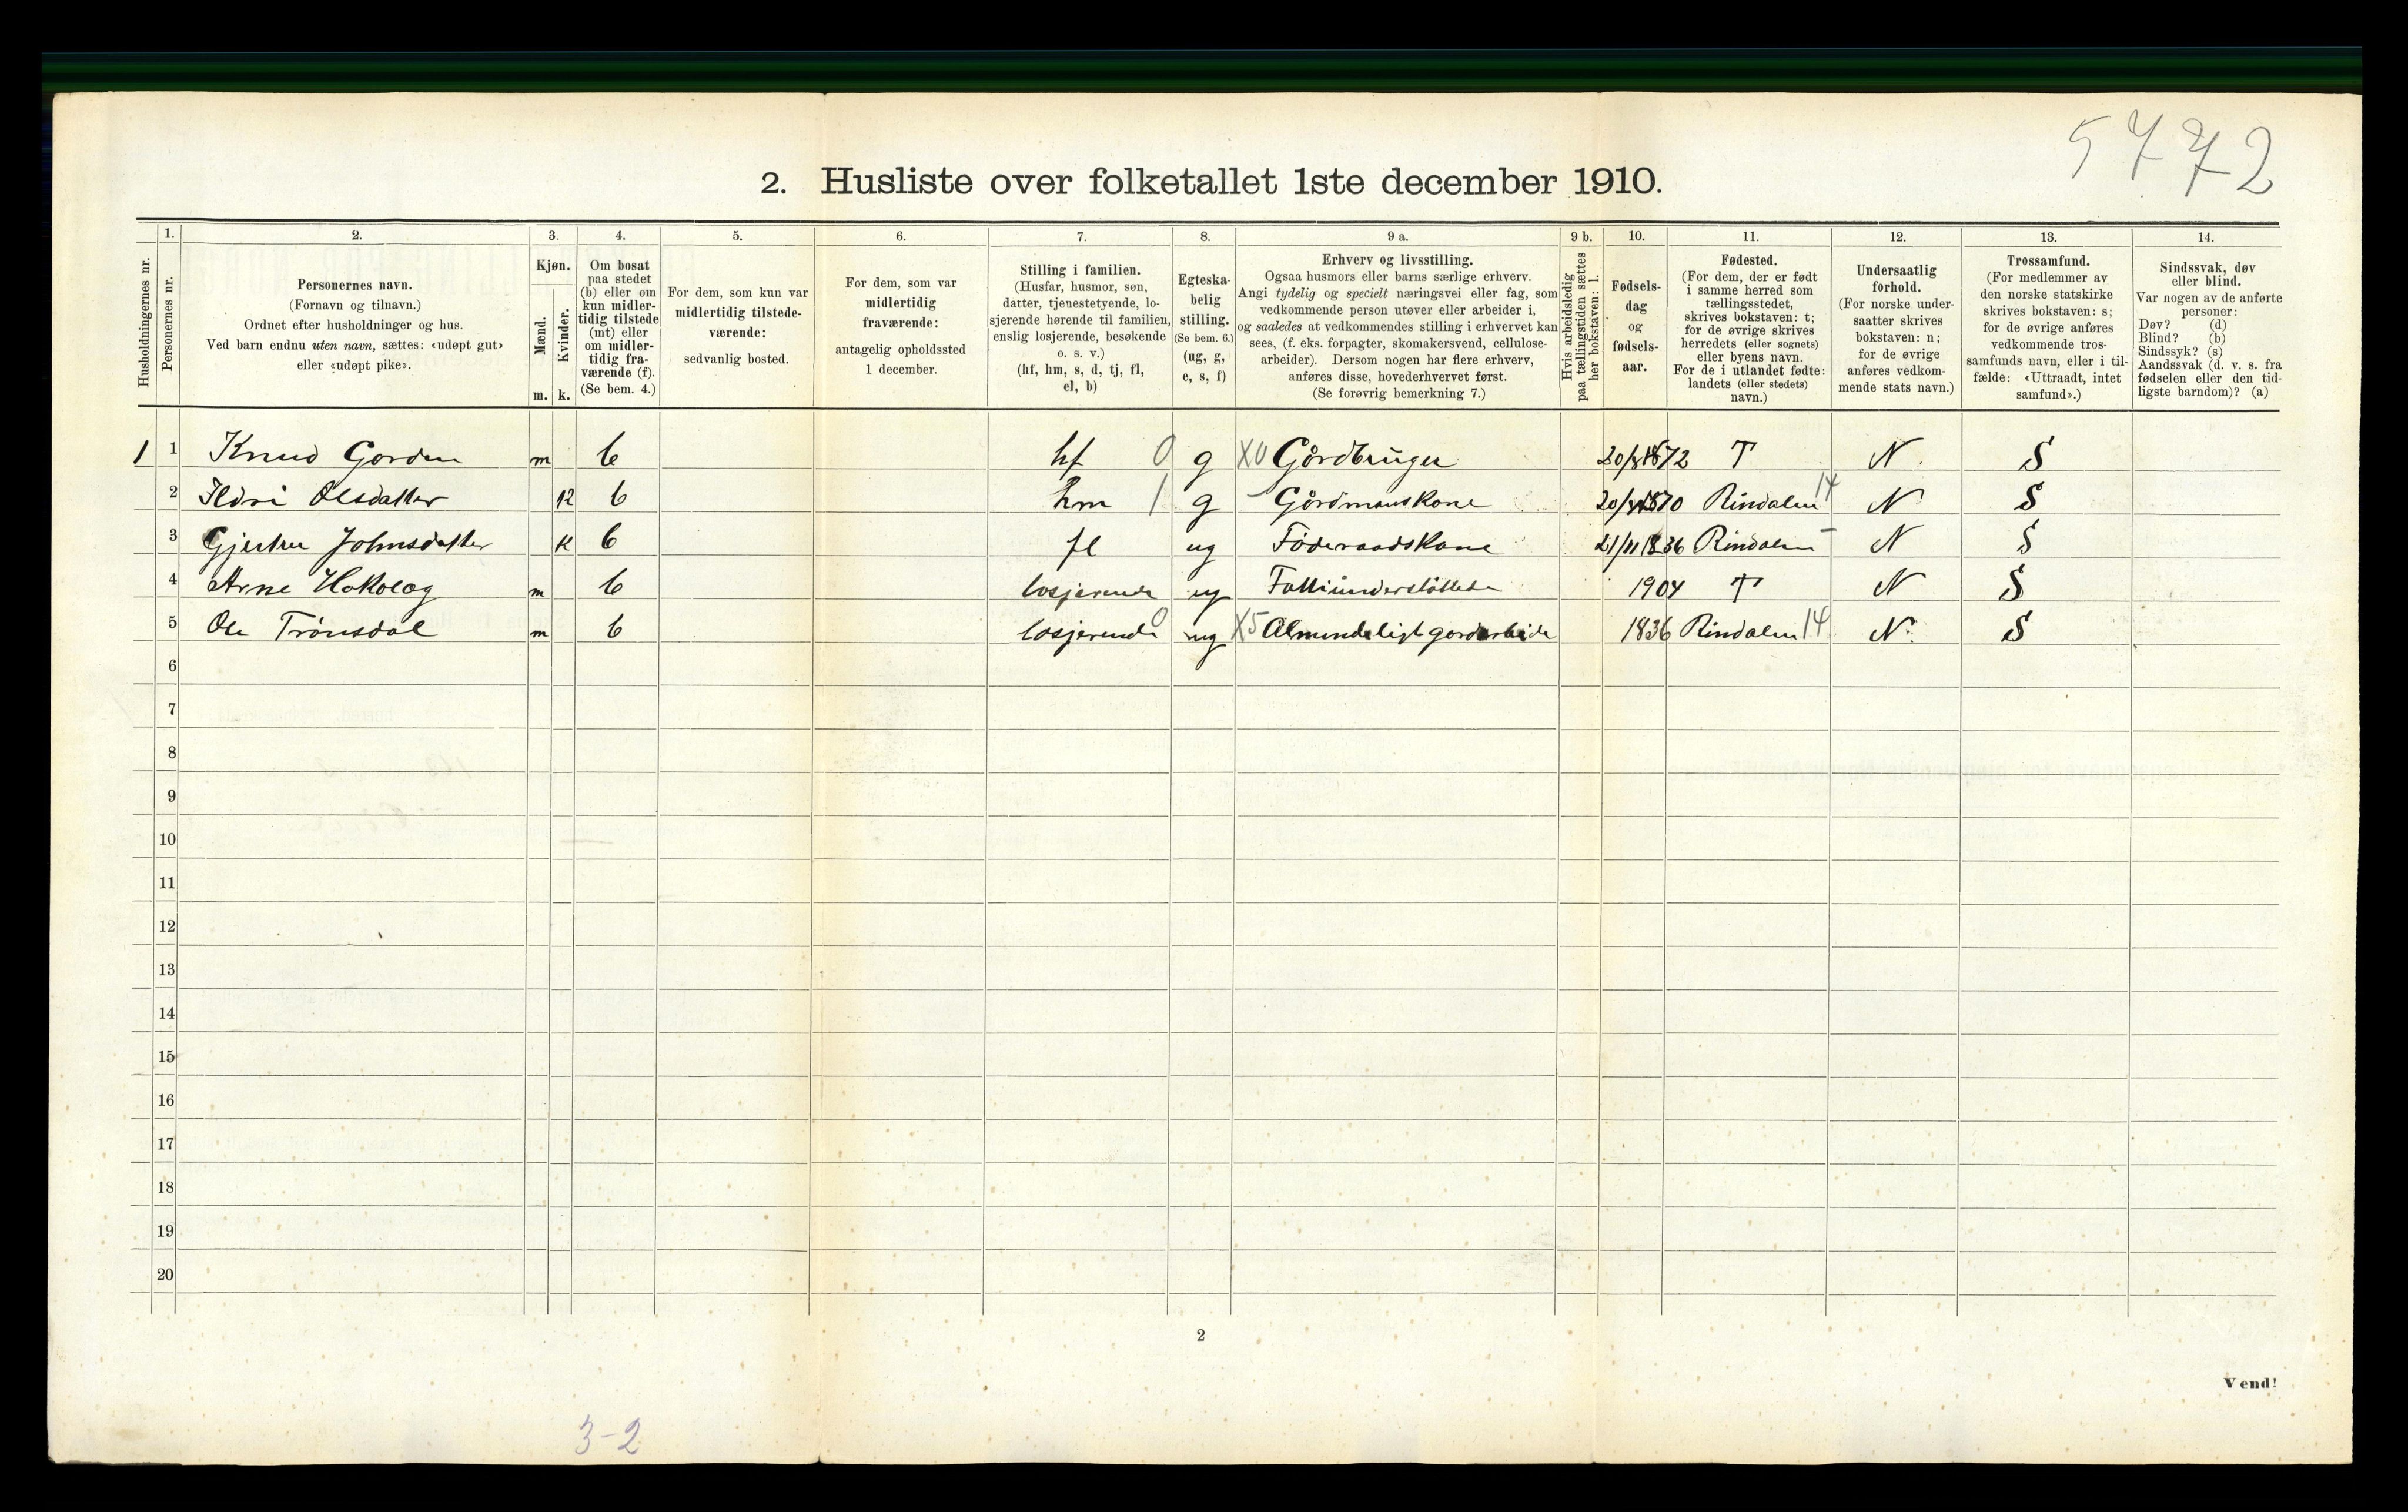 5772
2. Husliste over folketallet 1ste december 1910.
Husholdningernes nr.
1.
Personernes nr.
2.
Personernes navn.
(Fornavn og tilnavn.)
Ordnet efter husholdninger og hus.
Ved barn endnu uten navn, sættes: «udøpt gut»
eller «udøpt pike».
3.
Kjøn.
Mænd.
Kvinder.
m. k.
4.
Om bosat
paa stedet
(b) eller om
kun midler-
tidig tilstede
(mt) eller
om midler-
tidig fra-
værende (f).
(Se bem. 4.)
5.
For dem, som kun var
midlertidig tilstede-
værende:
sedvanlig bosted.
6.
For dem, som var
midlertidig
fraværende:
antagelig opholdssted
1 december.
7.
Stilling i familien.
(Husfar, husmor, søn,
datter, tjenestetyende, lo-
sjerende hørende til familien,
enslig losjerende, besøkende
o. s. v.)
(hf, hm, s, d, tj, fl,
el, b)
8.
Egteska-
belig
stilling.
(Se bem. 6.)
(ug, g,
e, s, f)
9 a.
Erhverv og livsstilling.
Ogsaa husmors eller barns særlige erhverv.
Angi tydelig og specielt næringsvei eller fag, som
vedkommende person utøver eller arbeider i,
og saaledes at vedkommendes stilling i erhvervet kan
sees, (f. eks. forpagter, skomakersvend, cellulose-
arbeider). Dersom nogen har flere erhverv,
anføres disse, hovederhvervet først.
(Se forøvrig bemerkning 7.)
9 b.
Hvis arbeidsledig
paa tællingstiden sættes
her bokstaven: l.
10.
Fødsels-
dag
og
fødsels-
aar.
11.
Fødested.
(For dem, der er født
i samme herred som
tællingsstedet,
skrives bokstaven: t;
for de øvrige skrives
herredets (eller sognets)
eller byens navn.
For de i utlandet fødte:
landets (eller stedets)
navn.)
12.
Undersaatlig
forhold.
(For norske under-
saatter skrives
bokstaven: n;
for de øvrige
anføres vedkom-
mende stats navn.)
13.
Trossamfund.
(For medlemmer av
den norske statskirke
skrives bokstaven: s;
for de øvrige anføres
vedkommende tros-
samfunds navn, eller i til-
fælde: «Uttraadt, intet
samfund».)
14.
Sindssvak, døv
eller blind.
Var nogen av de anførte
personer:
Døv? (d)
Blind? (b)
Sindssyk? (s)
Aandssvak (d. v. s. fra
fødselen eller den tid-
ligste barndom)? (a)
1 1 Knud Gorden m b hf 0 g X0 Gårdbruger 1872 T N. S
2 Ildri Olsdatter k b hm 1 g Gårdmanskone 1870 Rindalen 14 N S
3 Johnsdatter k b fl ug Föderaadskone 21/11 1836 Rindalen N S
4 Arne m b losjerende ug 1904 T N S
5 Ole Trönsdal m b losjerende 0 ug X5 Almindeligt gordarbeide 1836 Rindalen 14 N. S
6
7
8
9
10
11
12
13
14
15
16
17
18
19
20
2
Vend!
3-2